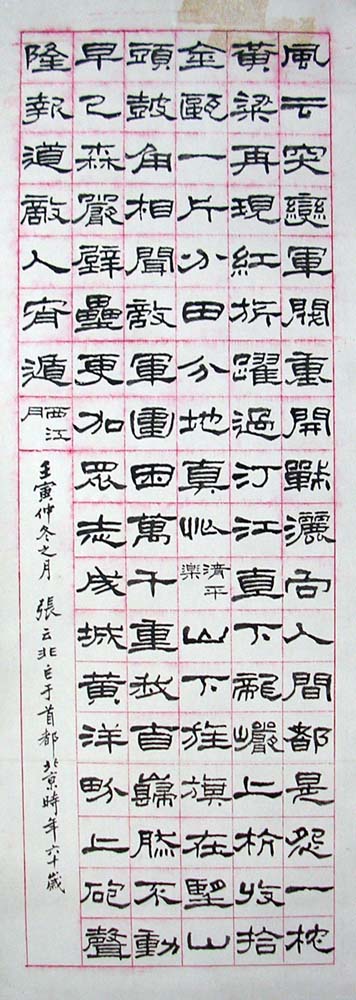 風云突變軍閥重開戰灑向人間都是怨一枕
黃梁再現紅旂躍過汀江直下龍巖上杭收拾
金甌一片分田分地真忙清平樂山下旌旗在望山
頭鼓角相聞敵軍圍困萬千重我自巋然不動
早已森嚴壁壘更加眾志成城黃洋畍上砲聲
隆報道敵人宵遁西江月
壬寅仲冬之月 張云于首都北京時年六十歲